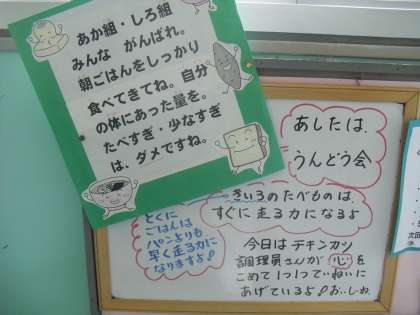 あか組・しろ組
みんな がんばれ。
朝ごはんをしっかり
食べてきてね。自分
の体にあった量を。
たべすぎ・少なすぎ
は、ダメですね。
あしたは、
うんどう会
きいろのたべものは、
すぐに走る力になるよ
とくに
ごはんは
パンよりも
早く走る力に
なりますよ♪
今日はチキンカツ
調理員さんが心を
こめて1つ1つていねいに
あげているよ♪おいしいね